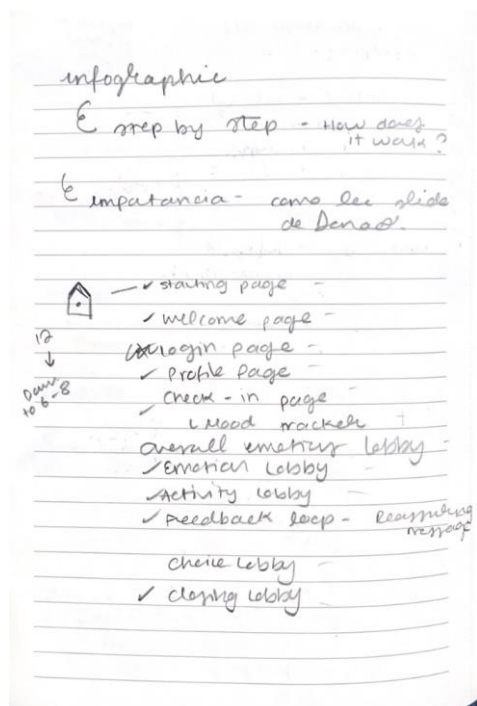 infographic
step by step - How does
it work?
importancia - como lee slide
de
✓ starting page -
✓ welcome page -
login page -
✓ Profile page -
✓ Check-in page -
Mood tracker
overall emotions lobby -
✓ Emotion Lobby -
✓ Activity lobby -
✓ Feedback loop - Reassuring
message
choice lobby -
✓ closing lobby -
12
↓
Down
to 6-8